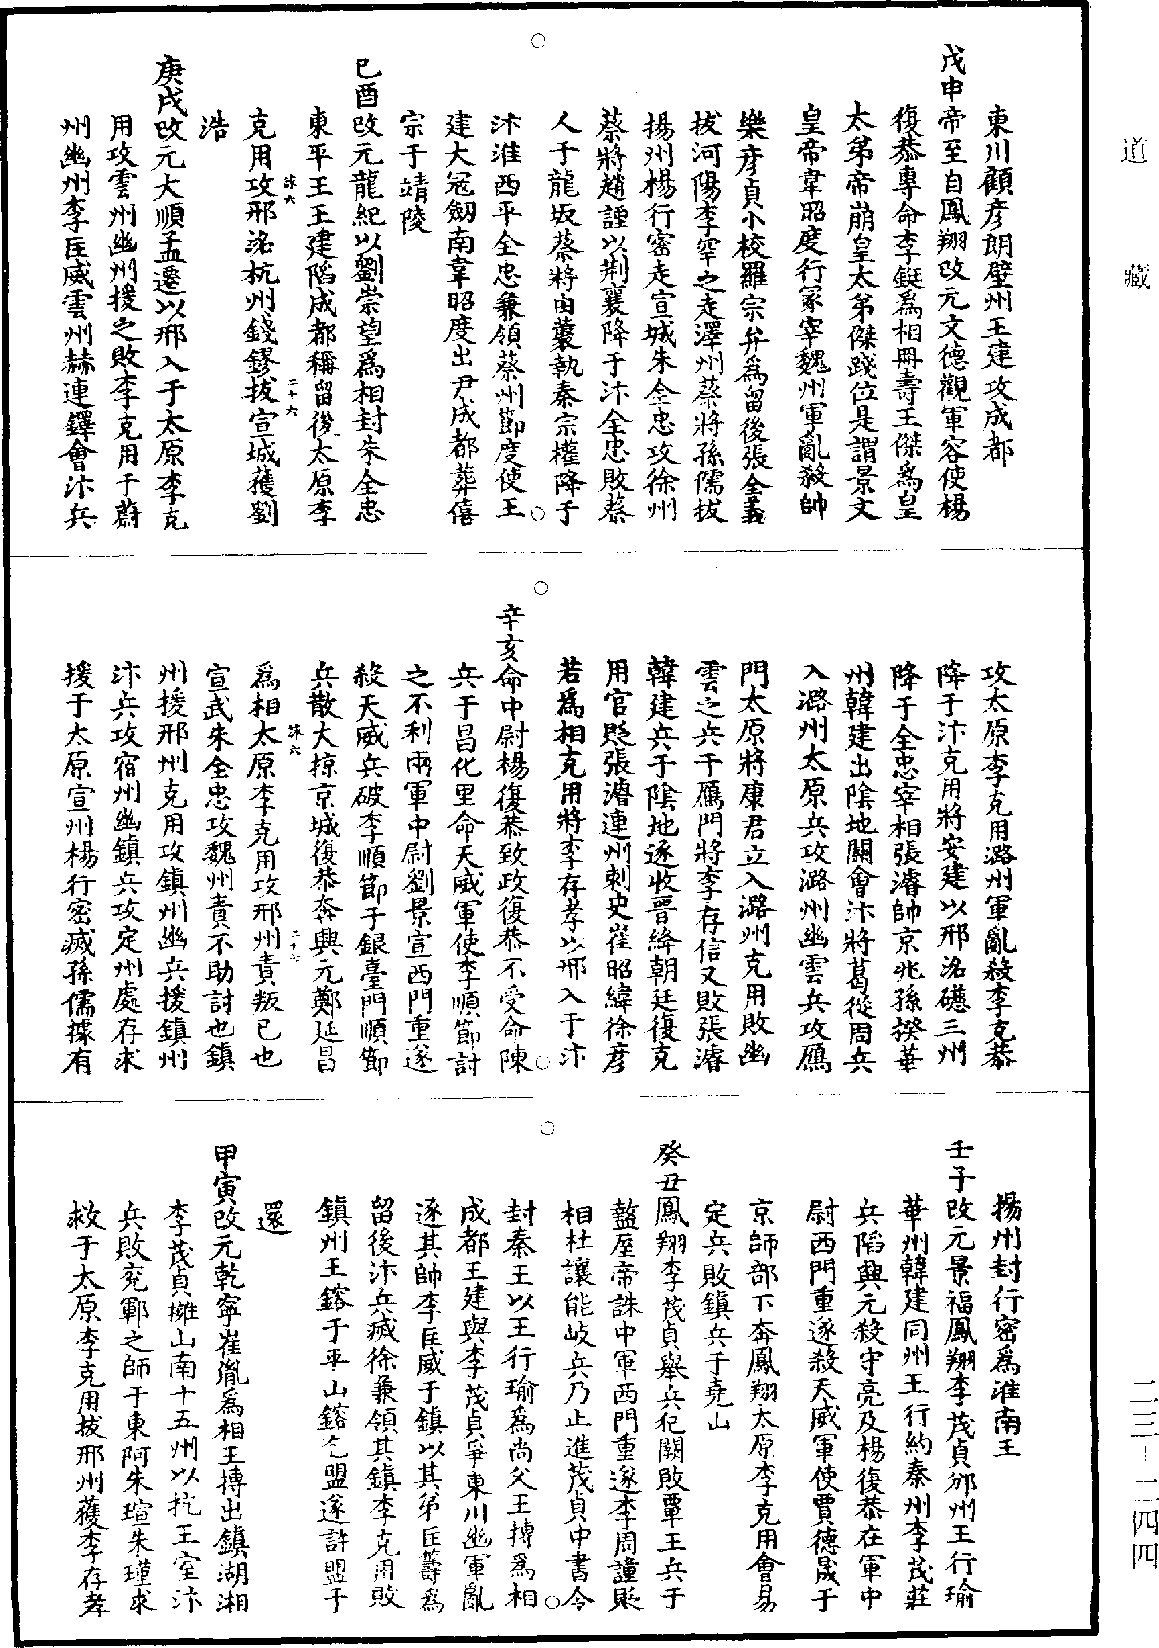 道藏
東川顧彥朗壁州王建攻成都
戊申帝至自鳳翔改元文德觀軍容使楊
復恭專命李鋌爲相冊壽王傑爲皇
太弟帝崩皇太弟傑踐位是謂景文
皇帝韋昭度行冢宰魏州軍亂殺帥
樂彥貞小校羅宗弁爲留後張全義
拔河陽李罕之走澤州蔡將孫儒拔
揚州楊行密走宣城朱全忠攻徐州
蔡將趙諲以荆襄降于汴全忠敗蔡
人于龍坂蔡將申叢執秦宗權降于
汴淮西平全忠兼領蔡州節度使王
建大寇劒南韋昭度出尹成都葬僖
宗于靖陵
己酉改元龍紀以劉崇望爲相封朱全忠
東平王王建陷成都稱留後太原李
克用攻邢洺杭州錢鏐拔宣城獲劉
浩
庚戌改元大順孟遷以邢入于太原李克
用攻雲州幽州援之敗李克用于蔚
州幽州李匡威雲州赫連鐸會汴兵
攻太原李克用潞州軍亂殺李克恭
降于汴克用將安建以邢洺磁三州
降于全忠宰相張濬帥京兆孫揆華
州韓建出陰地關會汴將葛從周兵
入潞州太原兵攻潞州幽雲兵攻鴈
門太原將康君立入潞州克用敗幽
雲之兵于鴈門將李存信又敗張濬
韓建兵于陰地遂收晉絳朝廷復克
用官貶張濬連州刺史崔昭緯徐彥
若爲相克用將李存孝以邢入于汴
辛亥命中尉楊復恭致政復恭不受命陳
兵于昌化里命天威軍使李順節討
之不利兩軍中尉劉景宣西門重遂
殺天威兵破李順節于銀臺門順節
兵散大掠京城復恭奔興元鄭延昌
爲相太原李克用攻邢州責叛己也
宣武朱全忠攻魏州責不助討也鎮
州援邢州克用攻鎮州幽兵援鎮州
汴兵攻宿州幽鎮兵攻定州處存求
援于太原宣州楊行密滅孫儒據有
揚州封行密爲淮南王
壬子改元景福鳳翔李茂貞邠州王行瑜
華州韓建同州王行約秦州李茂莊
兵陷興元殺守亮及楊復恭在軍中
尉西門重遂殺天威軍使賈德晟于
京師部下奔鳳翔太原李克用會易
定兵敗鎮兵于堯山
癸丑鳳翔李茂貞舉兵犯闕敗覃王兵于
盩厔帝誅中軍西門重遂李周諲貶
相杜讓能岐兵乃止進茂貞中書令
封秦王以王行瑜爲尚父王搏爲相
成都王建與李茂貞爭東川幽軍亂
逐其帥李匡威于鎮以其弟匡籌爲
留後汴兵滅徐兼領其鎮李克用敗
鎮州王鎔于平山鎔乞盟遂許盟于
還
甲寅改元乾寧崔胤爲相王搏出鎮湖湘
李茂貞擁山南十五州以抗王室汴
兵敗兖鄆之師于東阿朱瑄朱瑾求
救于太原李克用拔邢州獲李存孝
二三－二四四